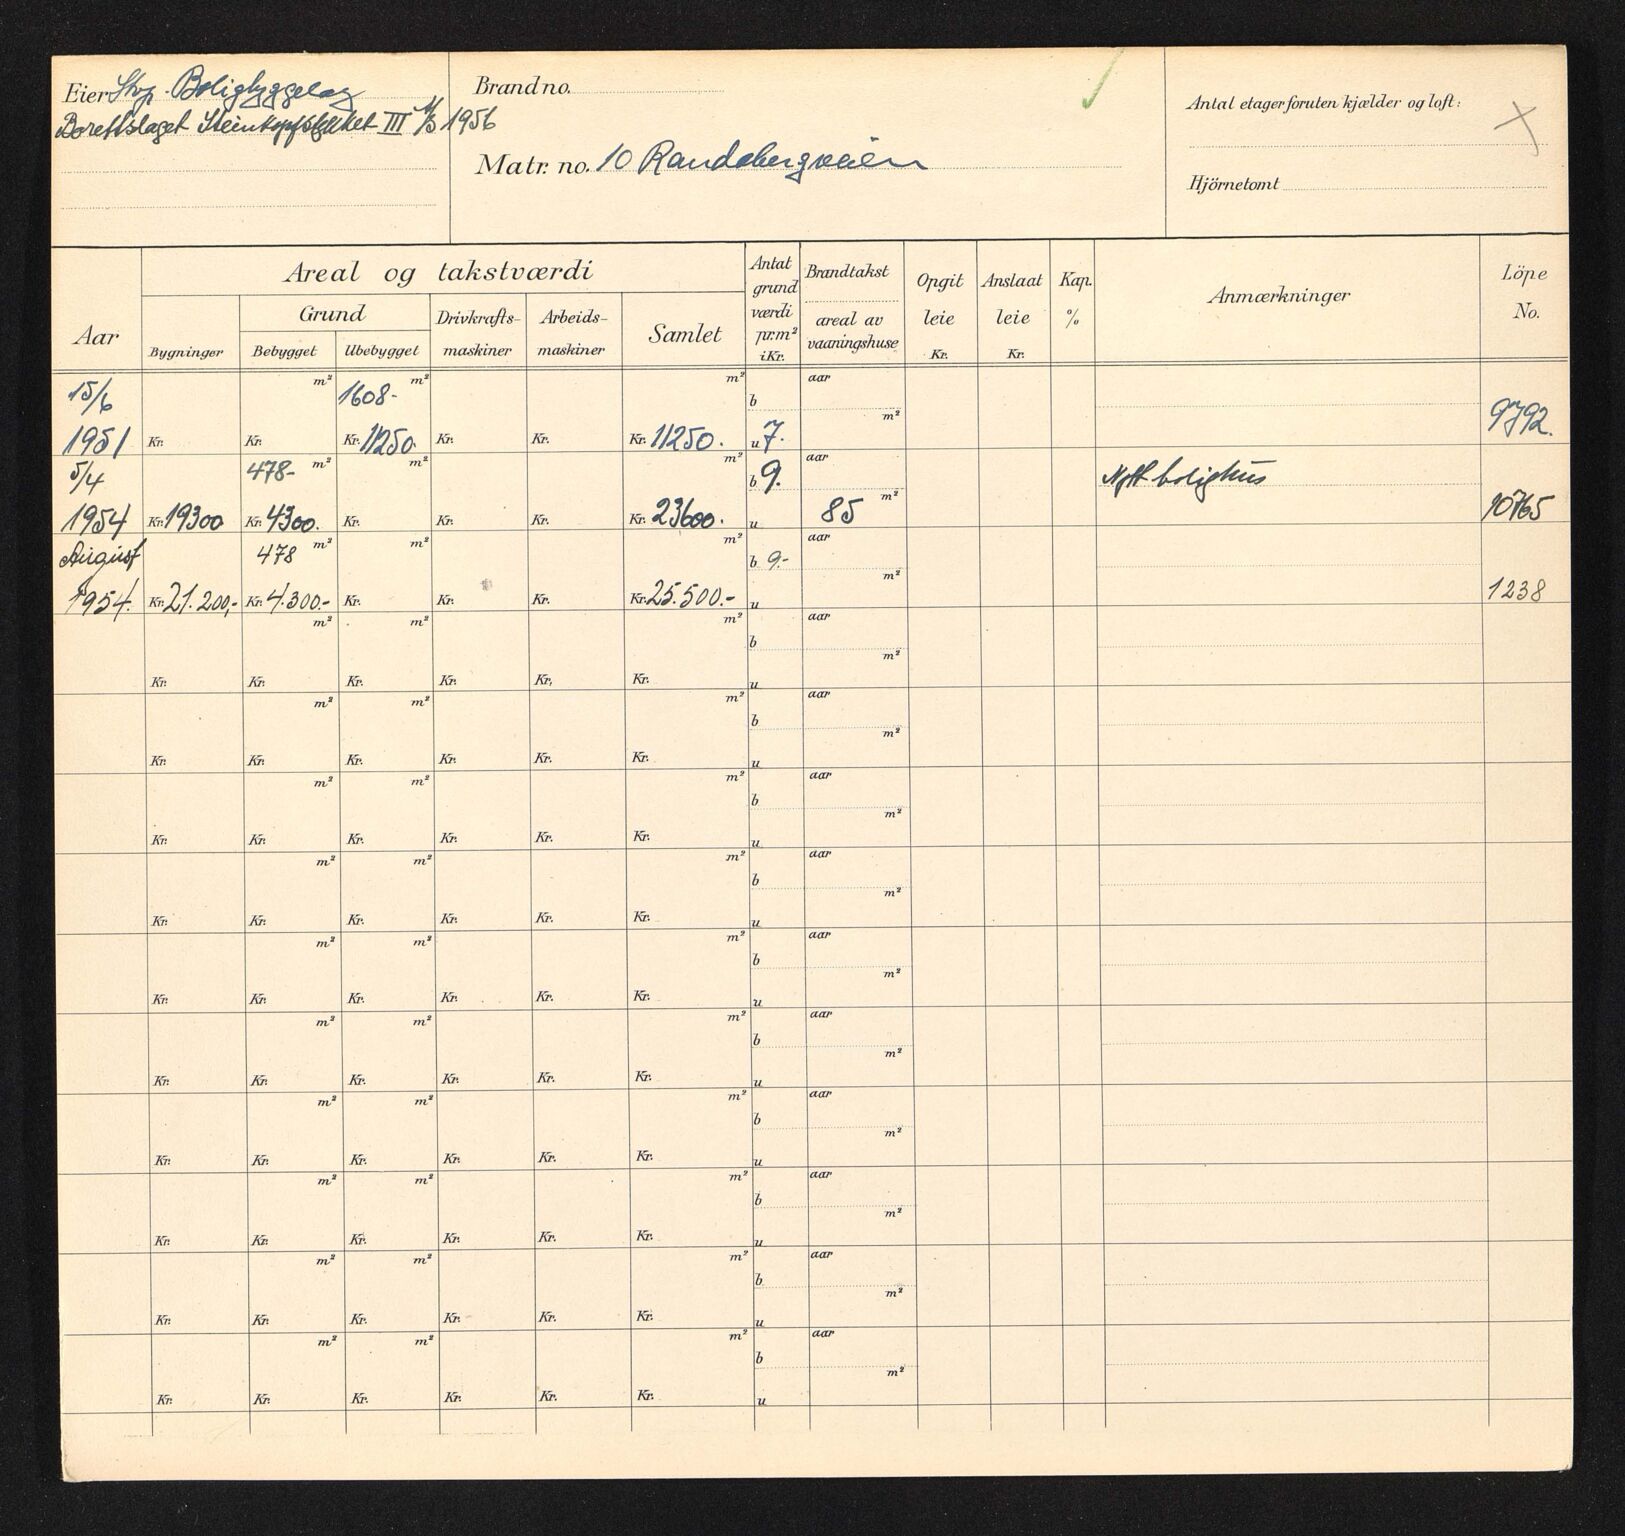 Eier Stvg. Boligbyggelag
Borettslaget Steinkopfstykket III 1956
Brand no.
Matr. no. 10 Randabergveien
Antal etager foruten kjælder og loft:
Hjörnetomt
Aar
Areal og takstværdi
Bygninger
Grund
Bebygget Ubebygget
Drivkrafts-
maskiner
Arbeids-
maskiner
Samlet
Antat
grund
værdi
pr. m²
i Kr.
Brandtakst
areal av
vaaningshuse
Opgit
leie
Kr.
Anslaat
leie
Kr.
Kap.
%
Anmærkninger
Löpe
No.
15/6 m² 1608- m² m² b aar
1951 Kr. Kr. Kr. 11250 Kr. Kr. Kr. 11250. u 7. m² 9792.
5/4 478- m² m² m² b 9. aar Nytt bolighus
1954 Kr. 19300 Kr. 4300. Kr. Kr. Kr. Kr. 23600. u 85 m² 10765
August 478 m² m² m² b 9.- aar
1954. Kr. 21.200,- Kr. 4.300.- Kr. Kr. Kr. Kr. 25.500.- u m² 1238
m² m² m² b aar
Kr. Kr. Kr. Kr. Kr. Kr. u m²
m² m² m² b aar
Kr. Kr. Kr. Kr. Kr. Kr. u m²
m² m² m² b aar
Kr. Kr. Kr. Kr. Kr. Kr. u m²
m² m² m² b aar
Kr. Kr. Kr. Kr. Kr. Kr. u m²
m² m² m² b aar
Kr. Kr. Kr. Kr. Kr. Kr. u m²
m² m² m² b aar
Kr. Kr. Kr. Kr. Kr. Kr. u m²
m² m² m² b aar
Kr. Kr. Kr. Kr. Kr. Kr. u m²
m² m² m² b aar
Kr. Kr. Kr. Kr. Kr. Kr. u m²
m² m² m² b aar
Kr. Kr. Kr. Kr. Kr. Kr. u m²
m² m² m² b aar
Kr. Kr. Kr. Kr. Kr. Kr. u m²